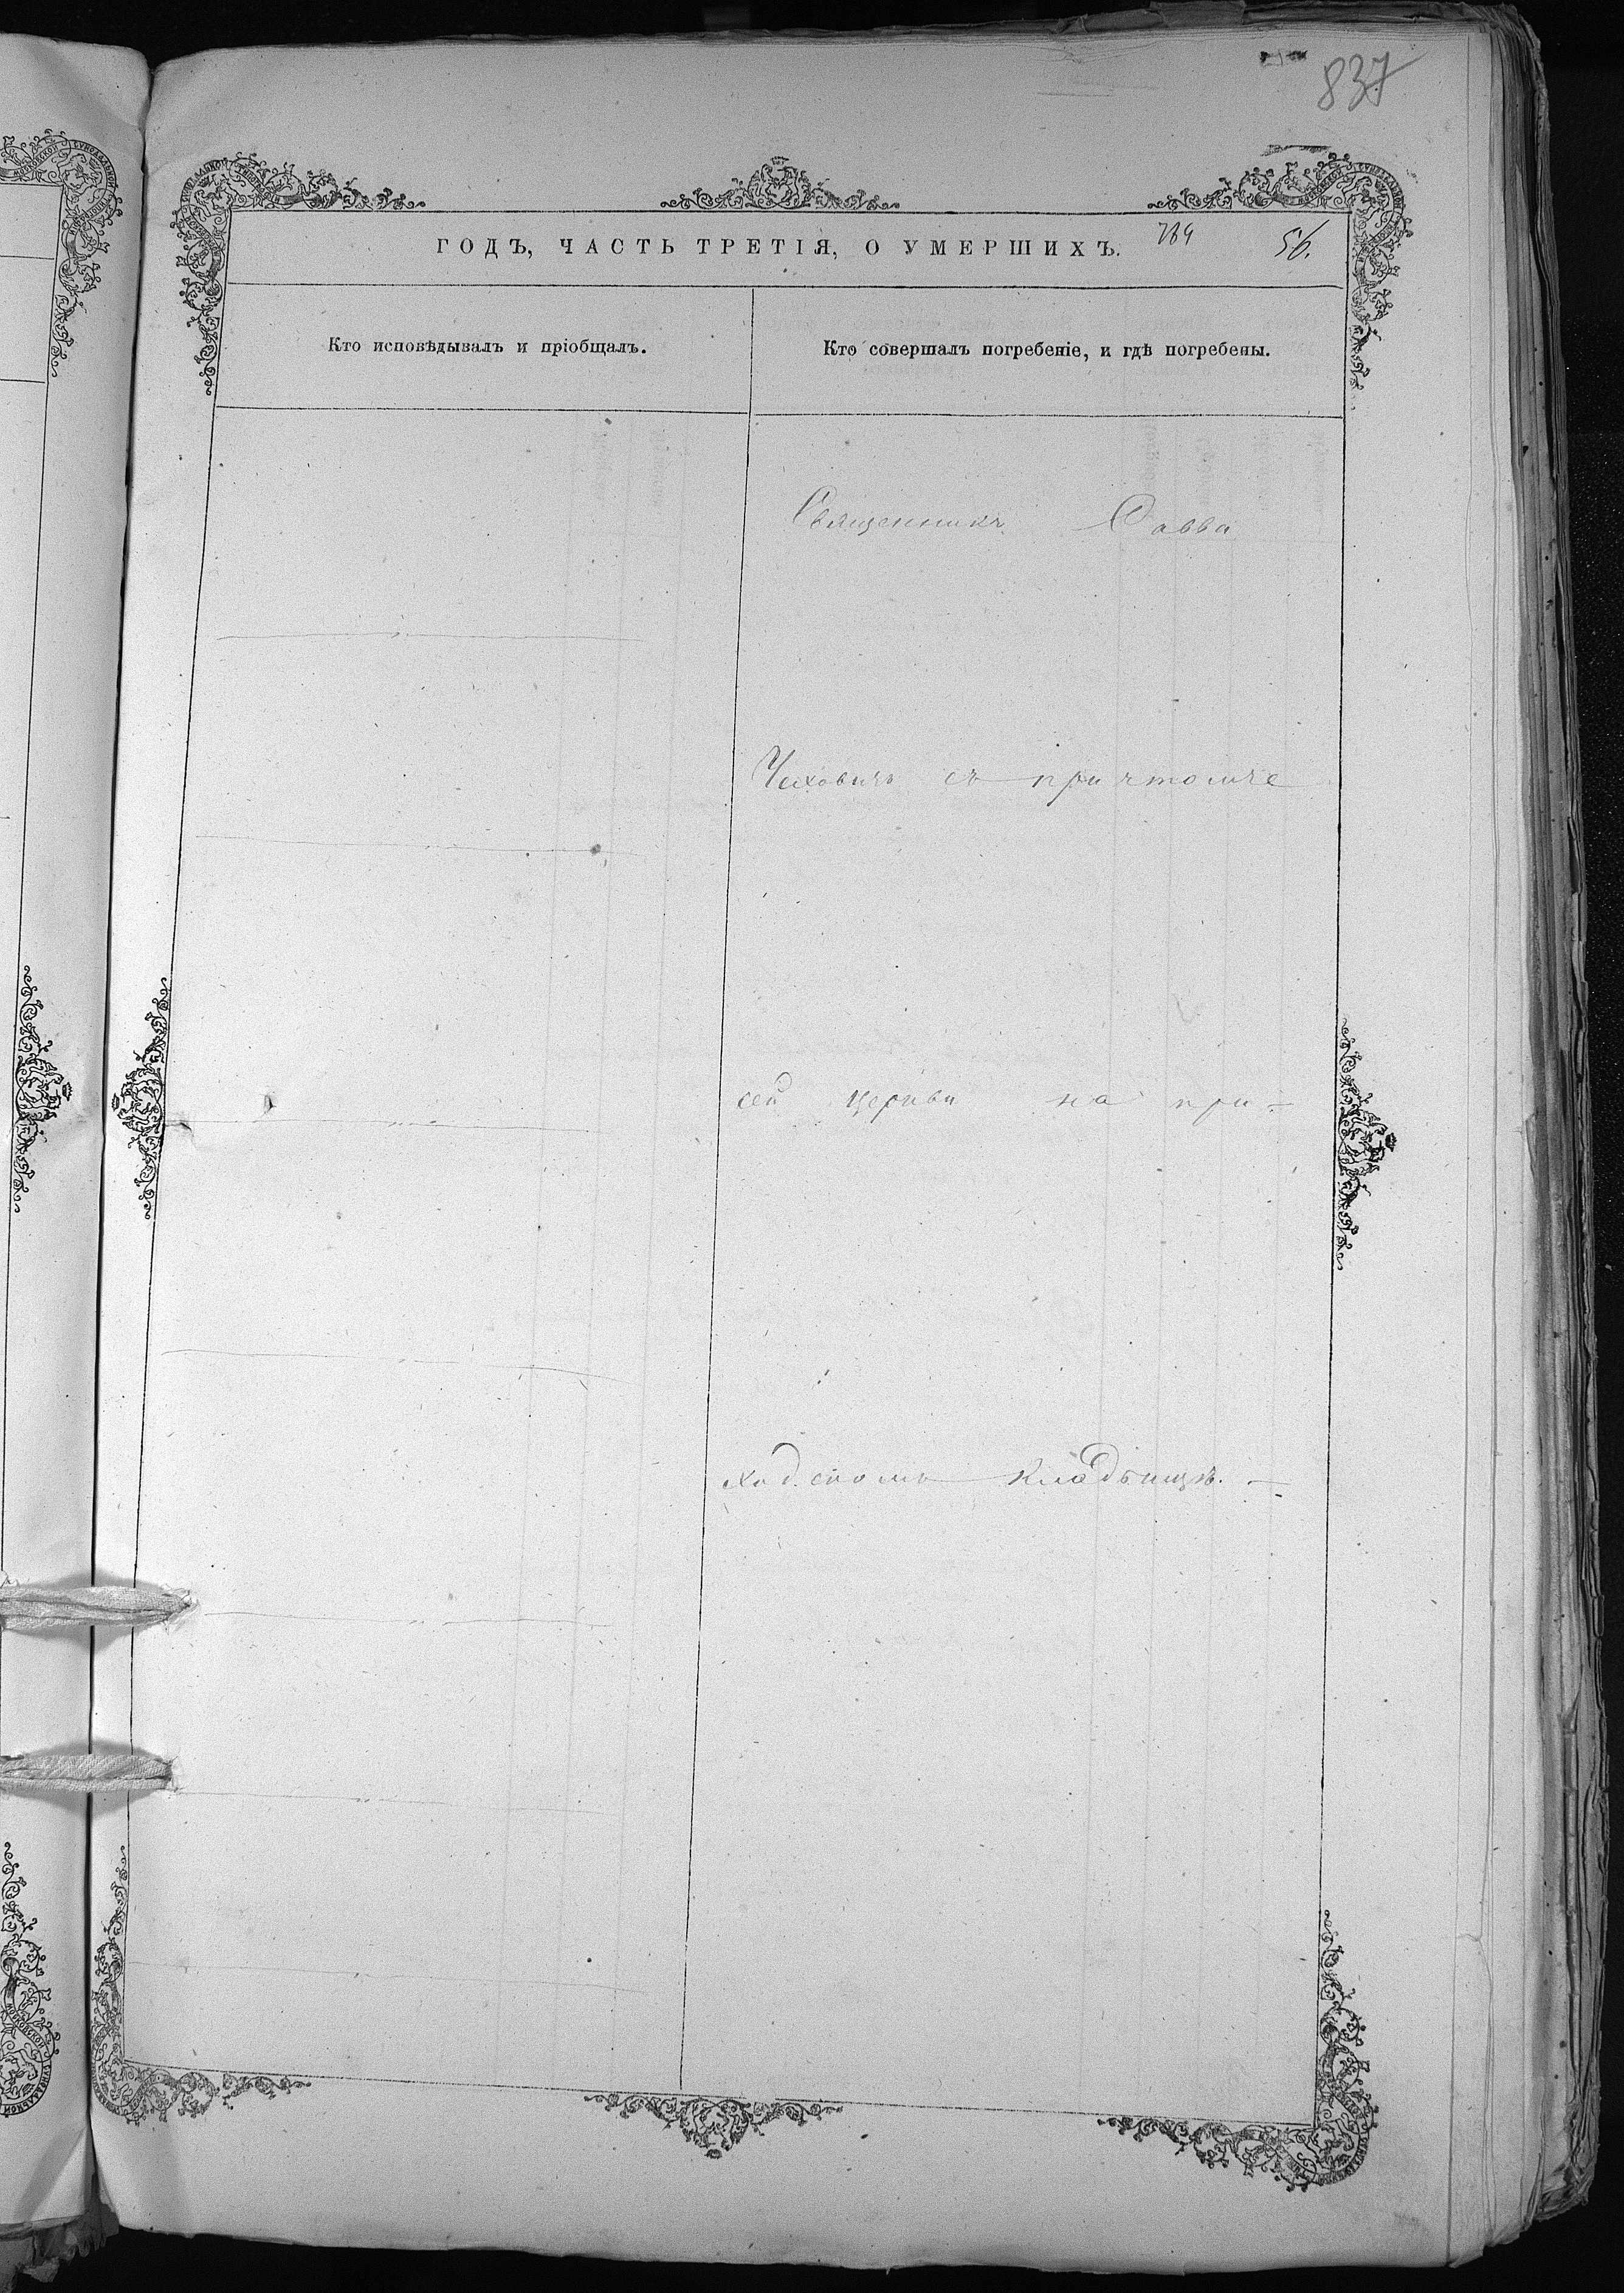 837
ГОДЪ, ЧАСТЬ ТРЕТІЯ, О УМЕРШИХЪ. 784 56.
Кто исповѣдывалъ и пріобщалъ.
Кто совершалъ погребеніе, и гдѣ погребены.
Священникъ Савва
Чеховичъ съ причтомъ
сей церкви на при-
ходскомъ кладбищѣ.